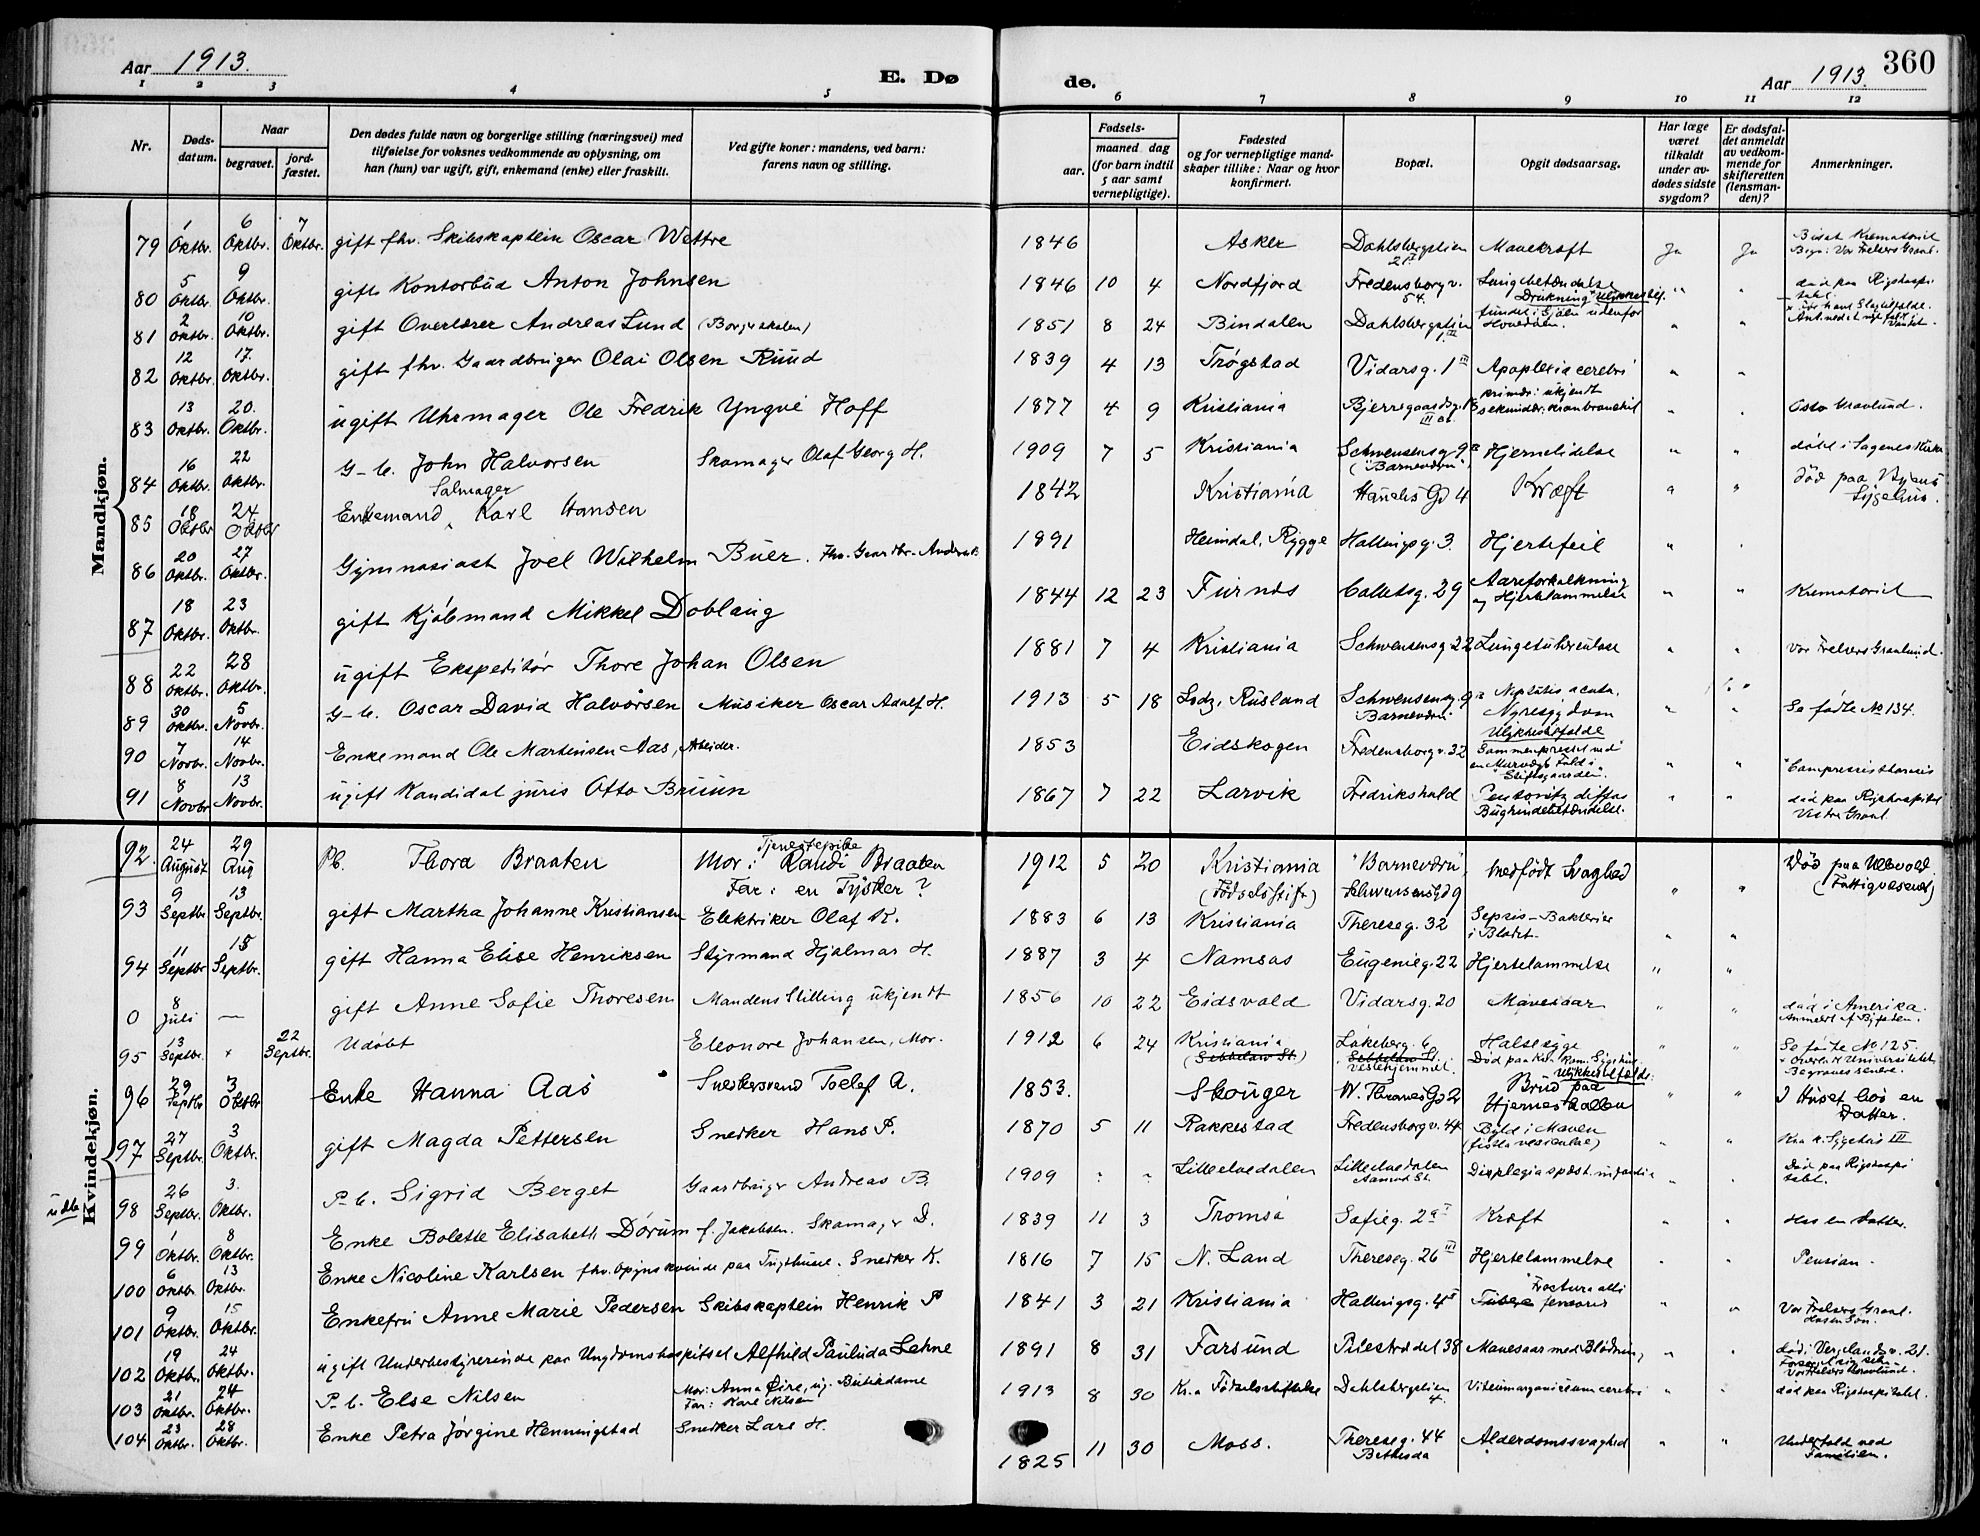 360
Aar 1913.
E. Dø
de.
Aar 1913.
1 2 3 4 5 6 7 8 9 10 11 12
Nr.
Døds-
datum.
Naar
begravet.
jord-
fæstet.
Den dødes fulde navn og borgerlige stilling (næringsvei) med
tilføielse for voksnes vedkommende av oplysning, om
han (hun) var ugift, gift, enkemand (enke) eller fraskilt.
Ved gifte koner: mandens, ved barn:
farens navn og stilling.
Fødsels-
aar.
maaned dag
(for barn indtil
5 aar samt
vernepligtige).
Fødested
og for vernepligtige mand-
skaper tillike: Naar og hvor
konfirmert.
Bopæl.
Opgit dødsaarsag.
Har læge
været
tilkaldt
under av-
dødes sidste
sygdom?
Er dødsfal-
det anmeldt
av vedkom-
mende for
skifteretten
(lensman-
den)?
Anmerkninger.
Mandkjøn.
79 1 Oktbr. 6 Oktbr. 7 Oktbr. gift fhv. Skibskaptein Oscar Wettre 1846 Asker Dahlsbergstien 21 Mavekræft Ja Ja Bisat Krematoriet
80 5 Oktbr. 9 Oktbr. gift Kontorbud Anton Johnsen 1846 10 4 Nordfjord Fredensborgv. 54. Lungebetændelse " " død paa Rigshospitalet
81 2 Oktbr. 10 Oktbr. gift Overlærer Andreas Lund (Borgerskolen) 1851 8 24 Bindalen Dahlsbergstien 1 III Drukning Ulykkestilf. fundet i Sjøen udenfor Hovedøen. " "
82 12 Oktbr. 17. Oktbr. gift fhv. Gaardbruger Olai Olsen Ruud 1839 4 13 Trøgstad Vidarsg. 1 III Apoplexia cerebri " "
83 13 Oktbr. 20. Oktbr. ugift Uhrmager Ole Fredrik Yngve Hoff 1877 4 9 Kristiania Bjerregaardsg. primær: ukjendt " . Oslo Gravlund.
84 16 Oktbr. 22 Oktbr. G-b. John Halvorsen Skomager Olaf Georg H. 1909 7 5 Kristiania Schwensensg. 9 ("Barnevern") Hjernelidelse " " døbt i Sagenes Kirke
85 18 Oktbr 24 Oktbr Enkemand Salmager Karl Hansen 1842 Kristiania Hauchs Gd 4 Kræft " " Død paa Byens Sygehus.
86 20 Oktbr. 27 Oktbr. Gymnasiast Joel Wilhelm Buer. Fhv. Gaardbr. 1891 Heimdal, Rygge Hallingsg. 3. Hjertefeil " .
87 18 Oktbr. 23 Oktbr. gift Kjøbmand Mikkel Doblaug 1844 12 23 Furnes Colletsg. 29 Aareforkalkning og Hjertelammelse " " Krematoriet
88 22 Oktbr. 28 Oktbr. ugift Ekspeditør Thore Johan Olsen 1881 7 4 Kristiania Schwensensg. 22 Lungetuberculose " " Vor Frelsers Gravlund.
89 30 Oktbr. 5 Novbr. G-b. Oscar David Halvorsen Musiker Oscar Adolf H. 1913 5 18 Lodz, Rusland Schwensensg. 9 Barnevern Nephitis acuta, Nyresygdom " " Se fødte No 134.
90 7 Novbr. 14 Novbr. Enkemand Ole Martinsen Aas, Arbeider. 1853 Eidskogen Fredensborgv. 32 Ulykkestilfælde Sammenpresset ved en Murvægs Fald i "Stiftsgaarden". " "
91 8 Novbr 13 Novbr. ugift Kandidat juris Otto Bruun 1867 7 22 Larvik Fredrikshald Bughindebetændelse. " " død paa Rigshospitalet Vestre Gravl.
Kvindekjøn.
92. 24 August 29 Aug P.b. Thora Braaten Mor: Tjenestepike Randi Braaten Far: en Tysker? 1912 5 20 Kristiania (Fødselsstift) "Barnevern", Schwensens Gd 9 Medfødt Svaghed " " Død paa Ullevold (Fattigvesenet)
93 9 Septbr 13 Septbr. gift Martha Johanne Kristiansen Elektriker Olaf K. 1883 6 13 Kristiania Thereseg. 32 Sepsis - Bakterier i Blodet " "
94 11 Septbr 15 Septbr. gift Hanna Elise Henriksen Styrmand Hjalmar H. 1887 3 4 Namsos Eugenieg. 22 Hjertelammelse " "
0 8 Juli — gift Anne Sofie Thoresen Mandens Stilling ukjendt 1856 10 22 Eidsvold Vidarsg. 20 Mavesaar " " død i Amerika. Anmeldt af Byfoden.
95 13 Septbr. × 22 Septbr. Udøbt Eleonore Johansen, Mor. 1912 6 24 Kristiania Løkeberg. 6 Vestehjemmet. Halsesyge " " Se fødte No 125. Begraves senere.
96 29 Septbr 3 Oktbr Enke Hanna Aas Snedkersvend Toelef A. 1853. Skouger W. Thranes Gd 2 Ulykkestilfælde: Brud paa Hjerneskallen " " I Huset hos en Datter.
97 27 Septbr. 3 Oktbr. gift Magda Pettersen Snedker Hans P. 1870 5 11 Rakkestad Fredensborgv. 44 Byld i Maven " " Kra k. Sygehus III
udb. 98 26 Septbr. 3. Oktbr. P.b. Sigrid Berget Gaardbruger Andreas B. 1909 " " Lilleelvedalen Lilleelvedalen Diplegia spast. infantia " . Død paa Rigshospitalet.
99 1 Oktbr. 8 Oktbr. Enke Bolette Elisabeth Dørum f. Jakobsen. Skomager D. 1839 11 3 Tromsø Sofieg. 2 Kræft " . Hos en Datter.
100 6 Oktbr 13 Oktbr. Enke Nicoline Karlsen fhv. Opsynskvinde paa Tugthuset. Snedker K. 1816 7 15 N. Land Thereseg. 26 III Hjertelammelse . . Pension.
101 9 Oktbr. 15 Oktbr. Enkefru Anne Marie Pedersen Skibskaptein Henrik P 1841 3 21 Kristiania Hallingsg. 4 femoris " " Vor Frelsers Gravl. Hos en Søn.
102 19 Oktbr. 24 Oktbr. ugift Underbestyrerinde paa Ungdomshospitset Alfhild Paulida Lehne 1891 8 31 Farsund Pilestrædet 38 Mavesaar med Blødning " "
103 21 Oktbr. 24 Oktbr. P.b. Else Nilsen Mor: Anna Øire, ug. Butikdame Far: Karl Nilsen 1913 8 30 Kr.a Fødselsstiftelse Dahlsbergstien 4. Vitium organicum cerebri " " død paa Rigshospitalet.
104 23 Oktbr. 28 Oktbr. Enke Petra Jørgine Henningstad Snedker Lars H. 1825 11 30 Moss. Thereseg. 44 Bethesda Alderdomssvaghed " " Underhold ved Familien.